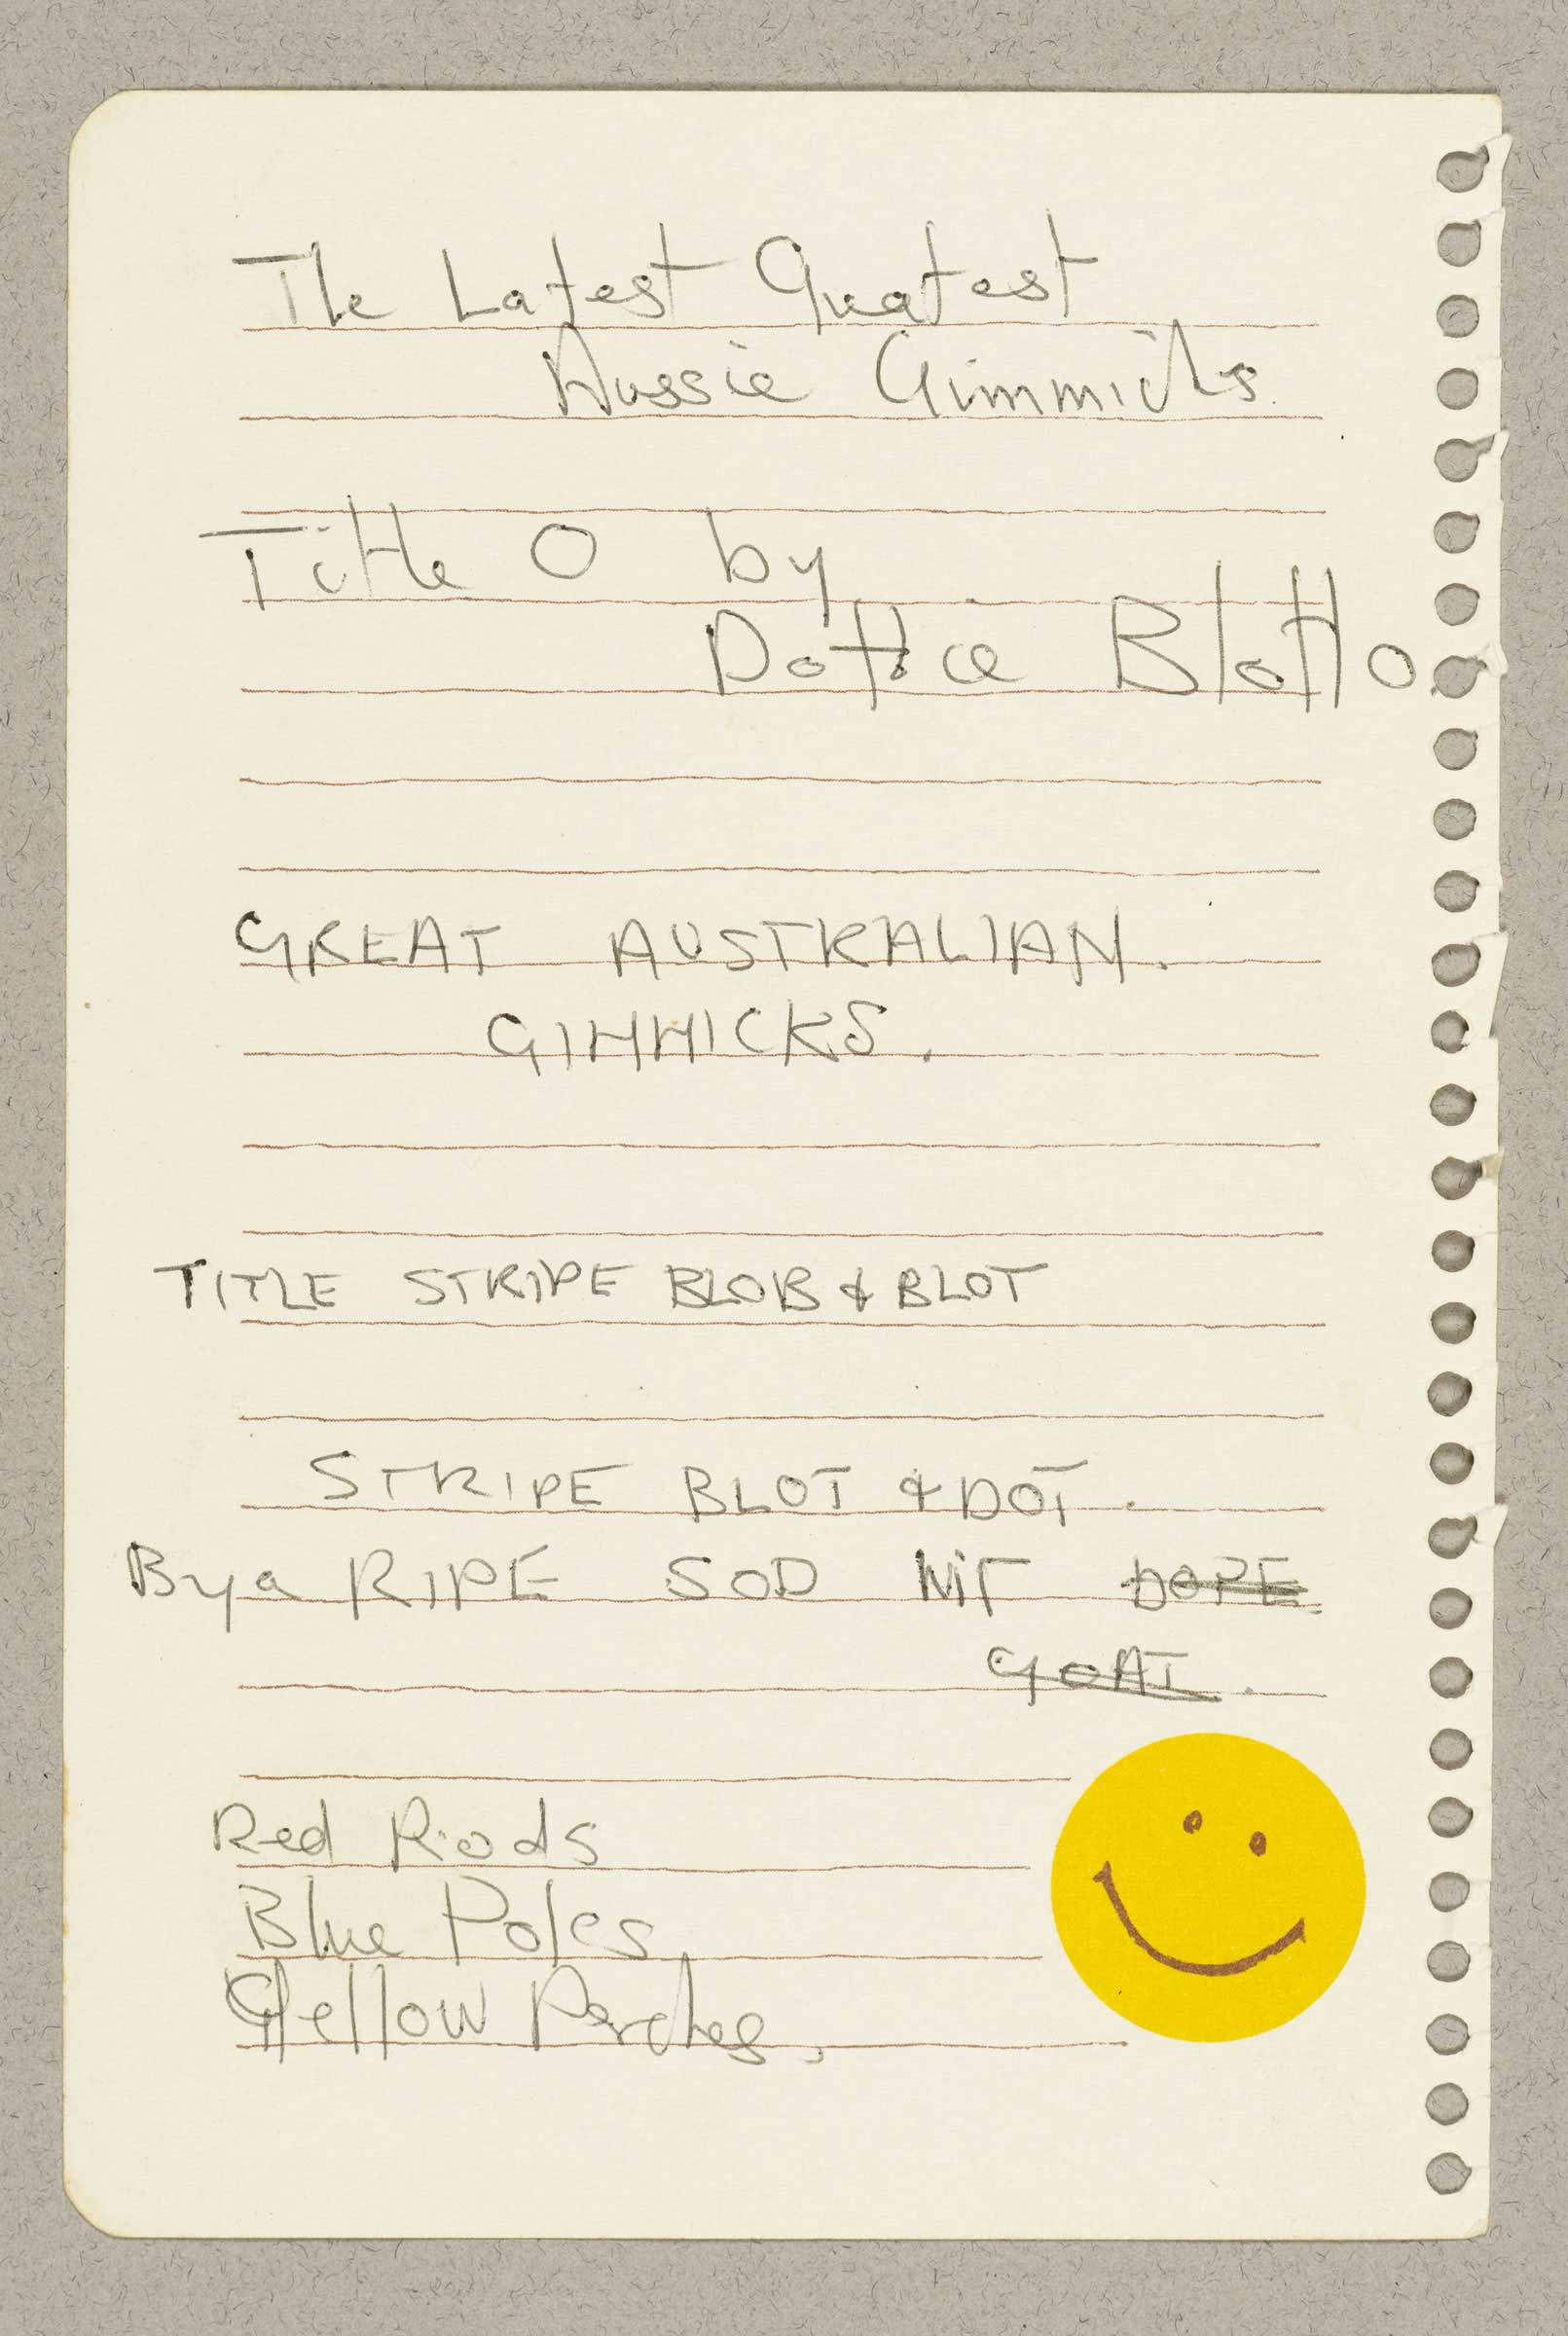 The Latest Greatest
Aussie Gimmicks
Title O by
Dottie Blotto.
GREAT AUSTRALIAN.
GIMMICKS.
TITLE STRIPE BLOB & BLOT
STRIPE BLOT & DOT.
By a RIPE SOD NIT DOPE
GOAT.
Red Rods
Blue Poles
Yellow Perches.